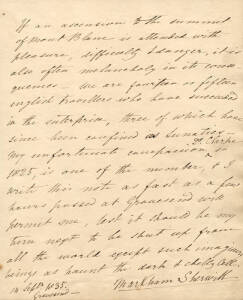 If an ascension to the summit
of Mont Blanc is attended with
pleasure, difficulty & danger, it is
also often melancholy in its conse-
quences – We are fourteen or fifteen
english travellers who have succeeded
in the enterprise, three of which have
since been confined as lunatics –
Dr. Clarke
My unfortunate companion in
1825, is one of the number, & I
write this note as fast as a few
hours passed at Gravesend will
permit me, lest it should be my
turn next to be shut up from
all the world except such imaginary
beings as haunt the dark & chilly cell.
Markham Sherwill
14 Septr. 1835.
Gravesend –